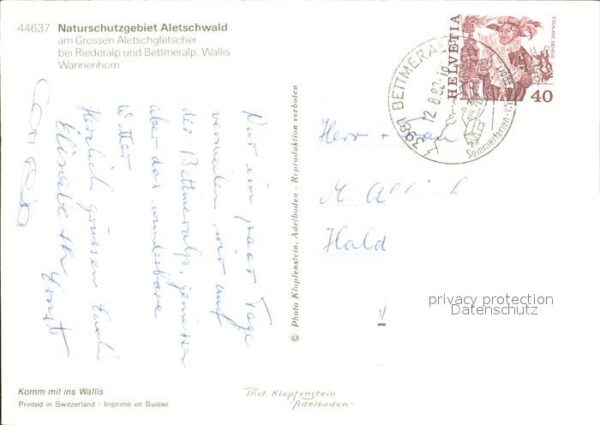 44637 Naturschutzgebiet Aletschwald
am Grossen Aletschgletscher
bei Riederalp und Bettmeralp, Wallis
Wannenhorn
HELVETIA
40
3981 BETTMERALP
12.8.82
Sommerferien
Nur ein paar Tage
verweilen wir auf
der Bettmeralp, geniessen
aber das wunderbare
Wetter
Herzlich grüssen Euch
Elisabeth Ernst
© Photo Klopfenstein, Adelboden - Reproduktion verboten
Herr + Frau
Hald
privacy protection
Datenschutz
Komm mit ins Wallis
Printed in Switzerland - Imprimé en Suisse
Phot. Klopfenstein
Adelboden